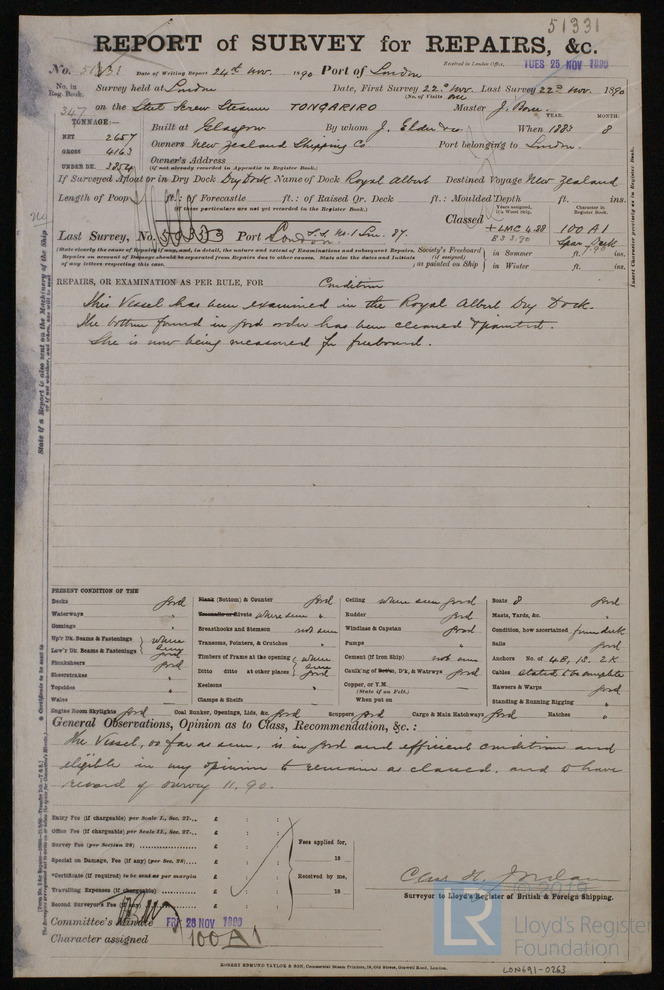 51331
REPORT of SURVEY for REPAIRS, &c.
No. 51331 Date of Writing Report 24th Nov. 1890 Port of London
Received in London Office, TUES 25 NOV 1890
No. in Reg. Book. Survey held at London Date, First Survey 22nd Nov. Last Survey 22nd Nov. 1890
(No. of Visits one)
347 on the Steel Screw Steamer TONGARIRO Master J. Bone.
TONNAGE:— Built at Glasgow By whom J. Elder & Co. When 1883 8
YEAR. MONTH.
NET 2657
GROSS 4163 Owners New Zealand Shipping Co Port belonging to London.
UNDER DK. Owner's Address
(if not already recorded in Appendix to Register Book.)
If Surveyed Afloat or in Dry Dock Dry Dock Name of Dock Royal Albert Destined Voyage New Zealand
Length of Poop ft.: of Forecastle ft.: of Raised Qr. Deck ft.: Moulded Depth ft. ins.
(If these particulars are not yet recorded in the Register Book.)
Classed
Years assigned, if a Wood Ship. Character in Register Book.
+LMC 4.88 100 A1
Last Survey, No. 50333 Port London Spar Deck
(State clearly the cause of Repairs if any, and, in detail, the nature and extent of Examinations and subsequent Repairs.
Repairs on account of Damage should be separated from Repairs due to other causes. State also the dates and initials
of any letters respecting this case.
Society's Freeboard (if assigned) as painted on Ship in Summer ft. ins.
in Winter ft. ins.
REPAIRS, OR EXAMINATION AS PER RULE, FOR Condition
This Vessel has been examined in the Royal Albert Dry Dock.
The bottom found in good order has been cleaned & painted.
She is now being measured for freeboard.
PRESENT CONDITION OF THE
Decks good
Waterways
Comings
Up'r Dk. Beams & Fastenings where seen good
Low'r Dk. Beams & Fastenings
Planksheers good
Sheerstrakes
Topsides
Wales
Engine Room Skylights good
Plank (Bottom) & Counter good
Treenails or Rivets where seen "
Breasthooks and Stemson not seen
Transoms, Pointers, & Crutches "
Timbers of Frame at the opening where seen good
Ditto ditto at other places
Keelsons
Clamps & Shelfs
Coal Bunker, Openings, Lids, &c. good
Ceiling where seen good
Rudder good
Windlass & Capstan good
Pumps "
Cement (if Iron Ship) not seen
Caulking of Bottom, D'k, & Watrwys good
Copper, or Y.M.
(State if on Felt.)
When put on
Scuppers good Cargo & Main Hatchways good
Boats 8 good
Masts, Yards, &c. "
Condition, how ascertained from deck
Sails good
Anchors No. of 4 B, 1 S. 2 K
Cables stated to be complete
Hawsers & Warps good
Standing & Running Rigging "
Hatches "
General Observations, Opinion as to Class, Recommendation, &c.:
The Vessel, so far as seen, is in good and efficient condition and
eligible in my opinion to remain as classed, and to have
record of survey 11.90.
Entry Fee (if chargeable) per Scale I., Sec. 27... £ : :
Office Fee (if chargeable) per Scale II., Sec. 27... £ : :
Survey Fee (per Section 28) £ : :
Special on Damage, Fee (if any) (per Sec. 28) £ : :
*Certificate (if required) to be sent as per margin £ : :
Travelling Expenses (if chargeable) £ : :
Second Surveyor's Fee (if any) £ : :
Fees applied for,
18
Received by me,
18
Chas H. Jordan
Surveyor to Lloyd's Register of British & Foreign Shipping.
Committee's Minute FRI 28 NOV 1890
Character assigned 100 A1
ROBERT EDMUND TAYLOR & SON, Commercial Steam Printers, 19, Old Street, Goswell Road, London.
© 2019
LR Lloyd's Register
Foundation
LON691-0263